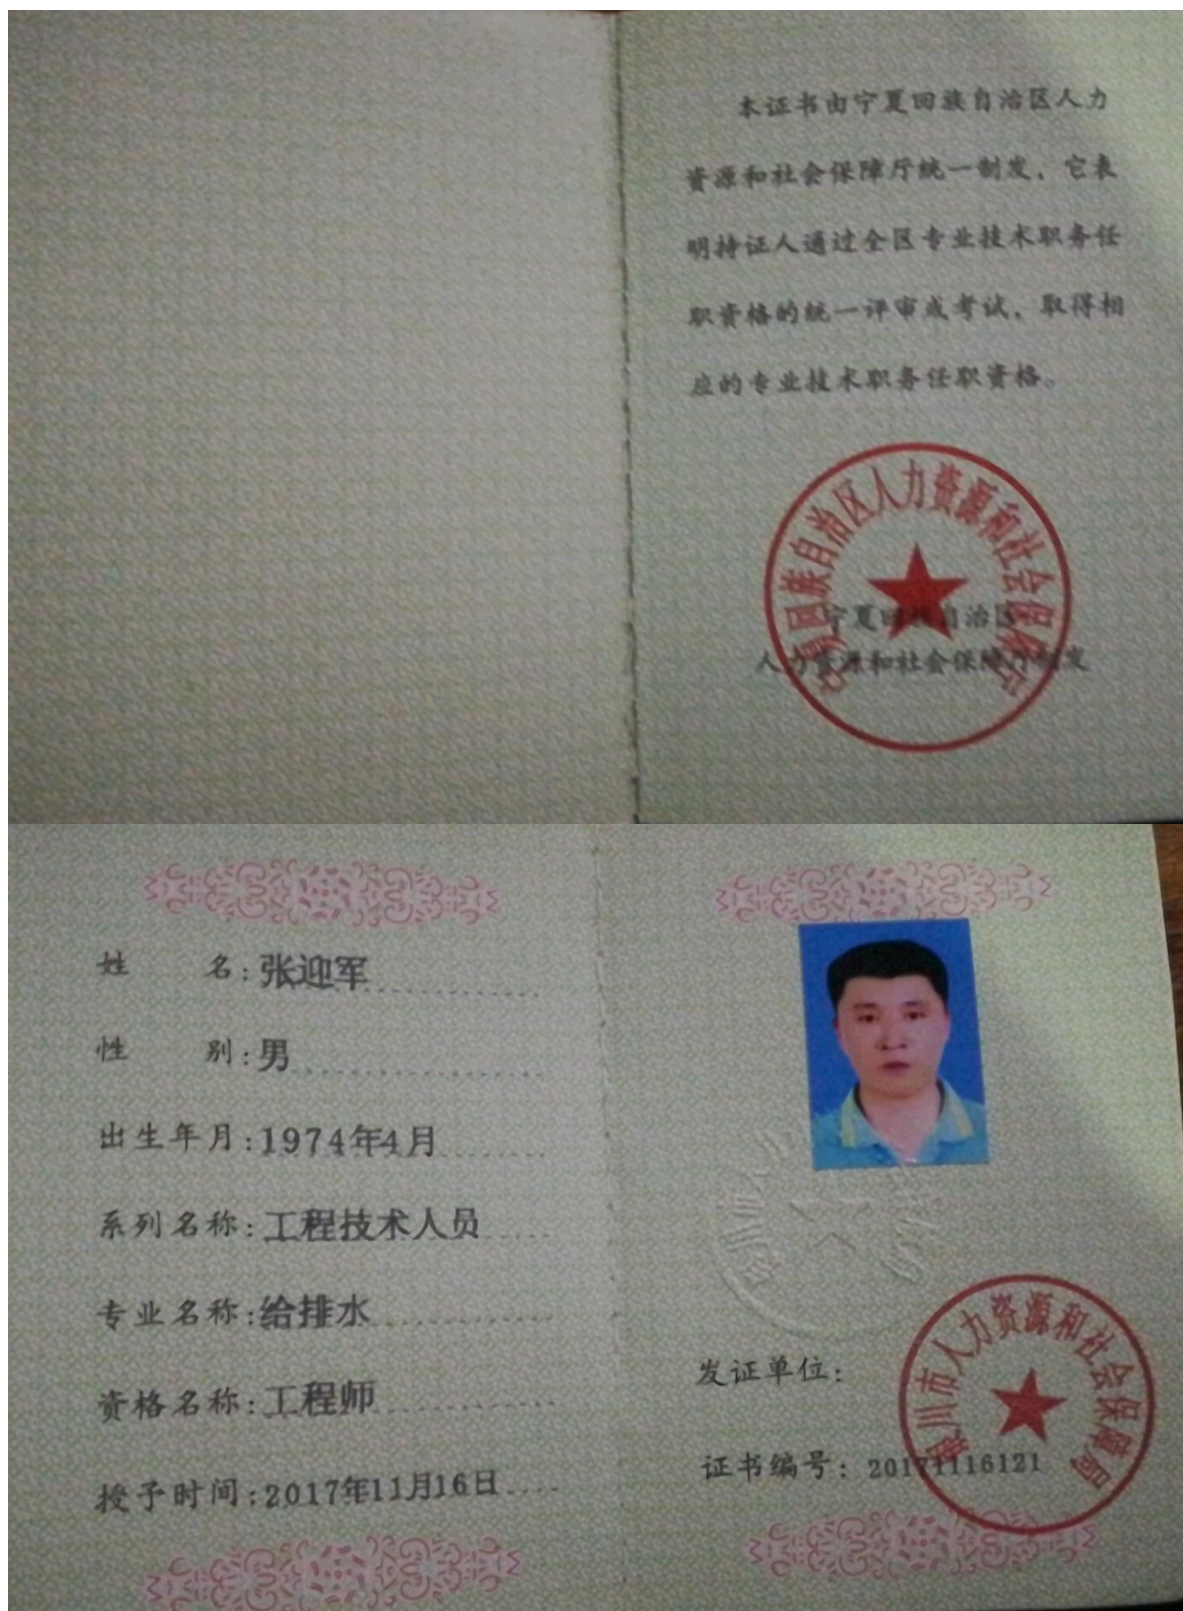 本证书由宁夏回族自治区人力
资源和社会保障厅统一制发，它表
明持证人通过全区专业技术职务任
职资格的统一评审或考试，取得相
应的专业技术职务任职资格。
宁夏回族自治区人力资源和社会保障厅
宁夏回族自治区
人力资源和社会保障厅制发
姓名:张迎军
性别:男
出生年月:1974年4月
系列名称:工程技术人员
专业名称:给排水
资格名称:工程师
授予时间:2017年11月16日
发证单位:
银川市人力资源和社会保障局
证书编号: 20171116121